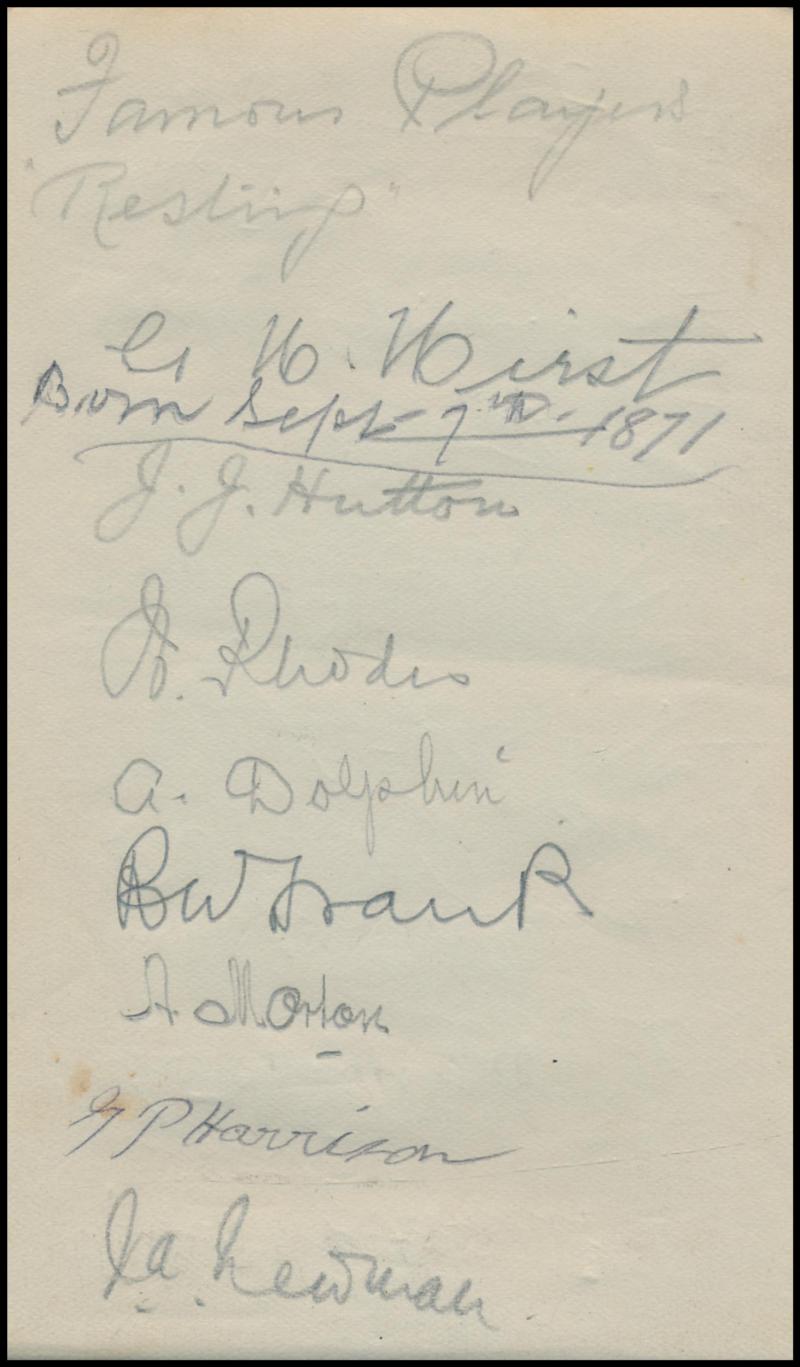 Famous Players
"Resting"
G H. Hirst
Born Sept 7TH. 1871
J. J. Hutton
W. Rhodes
A. Dolphin
R W Frank
A Morton
G P Harrison
J. A. Newman